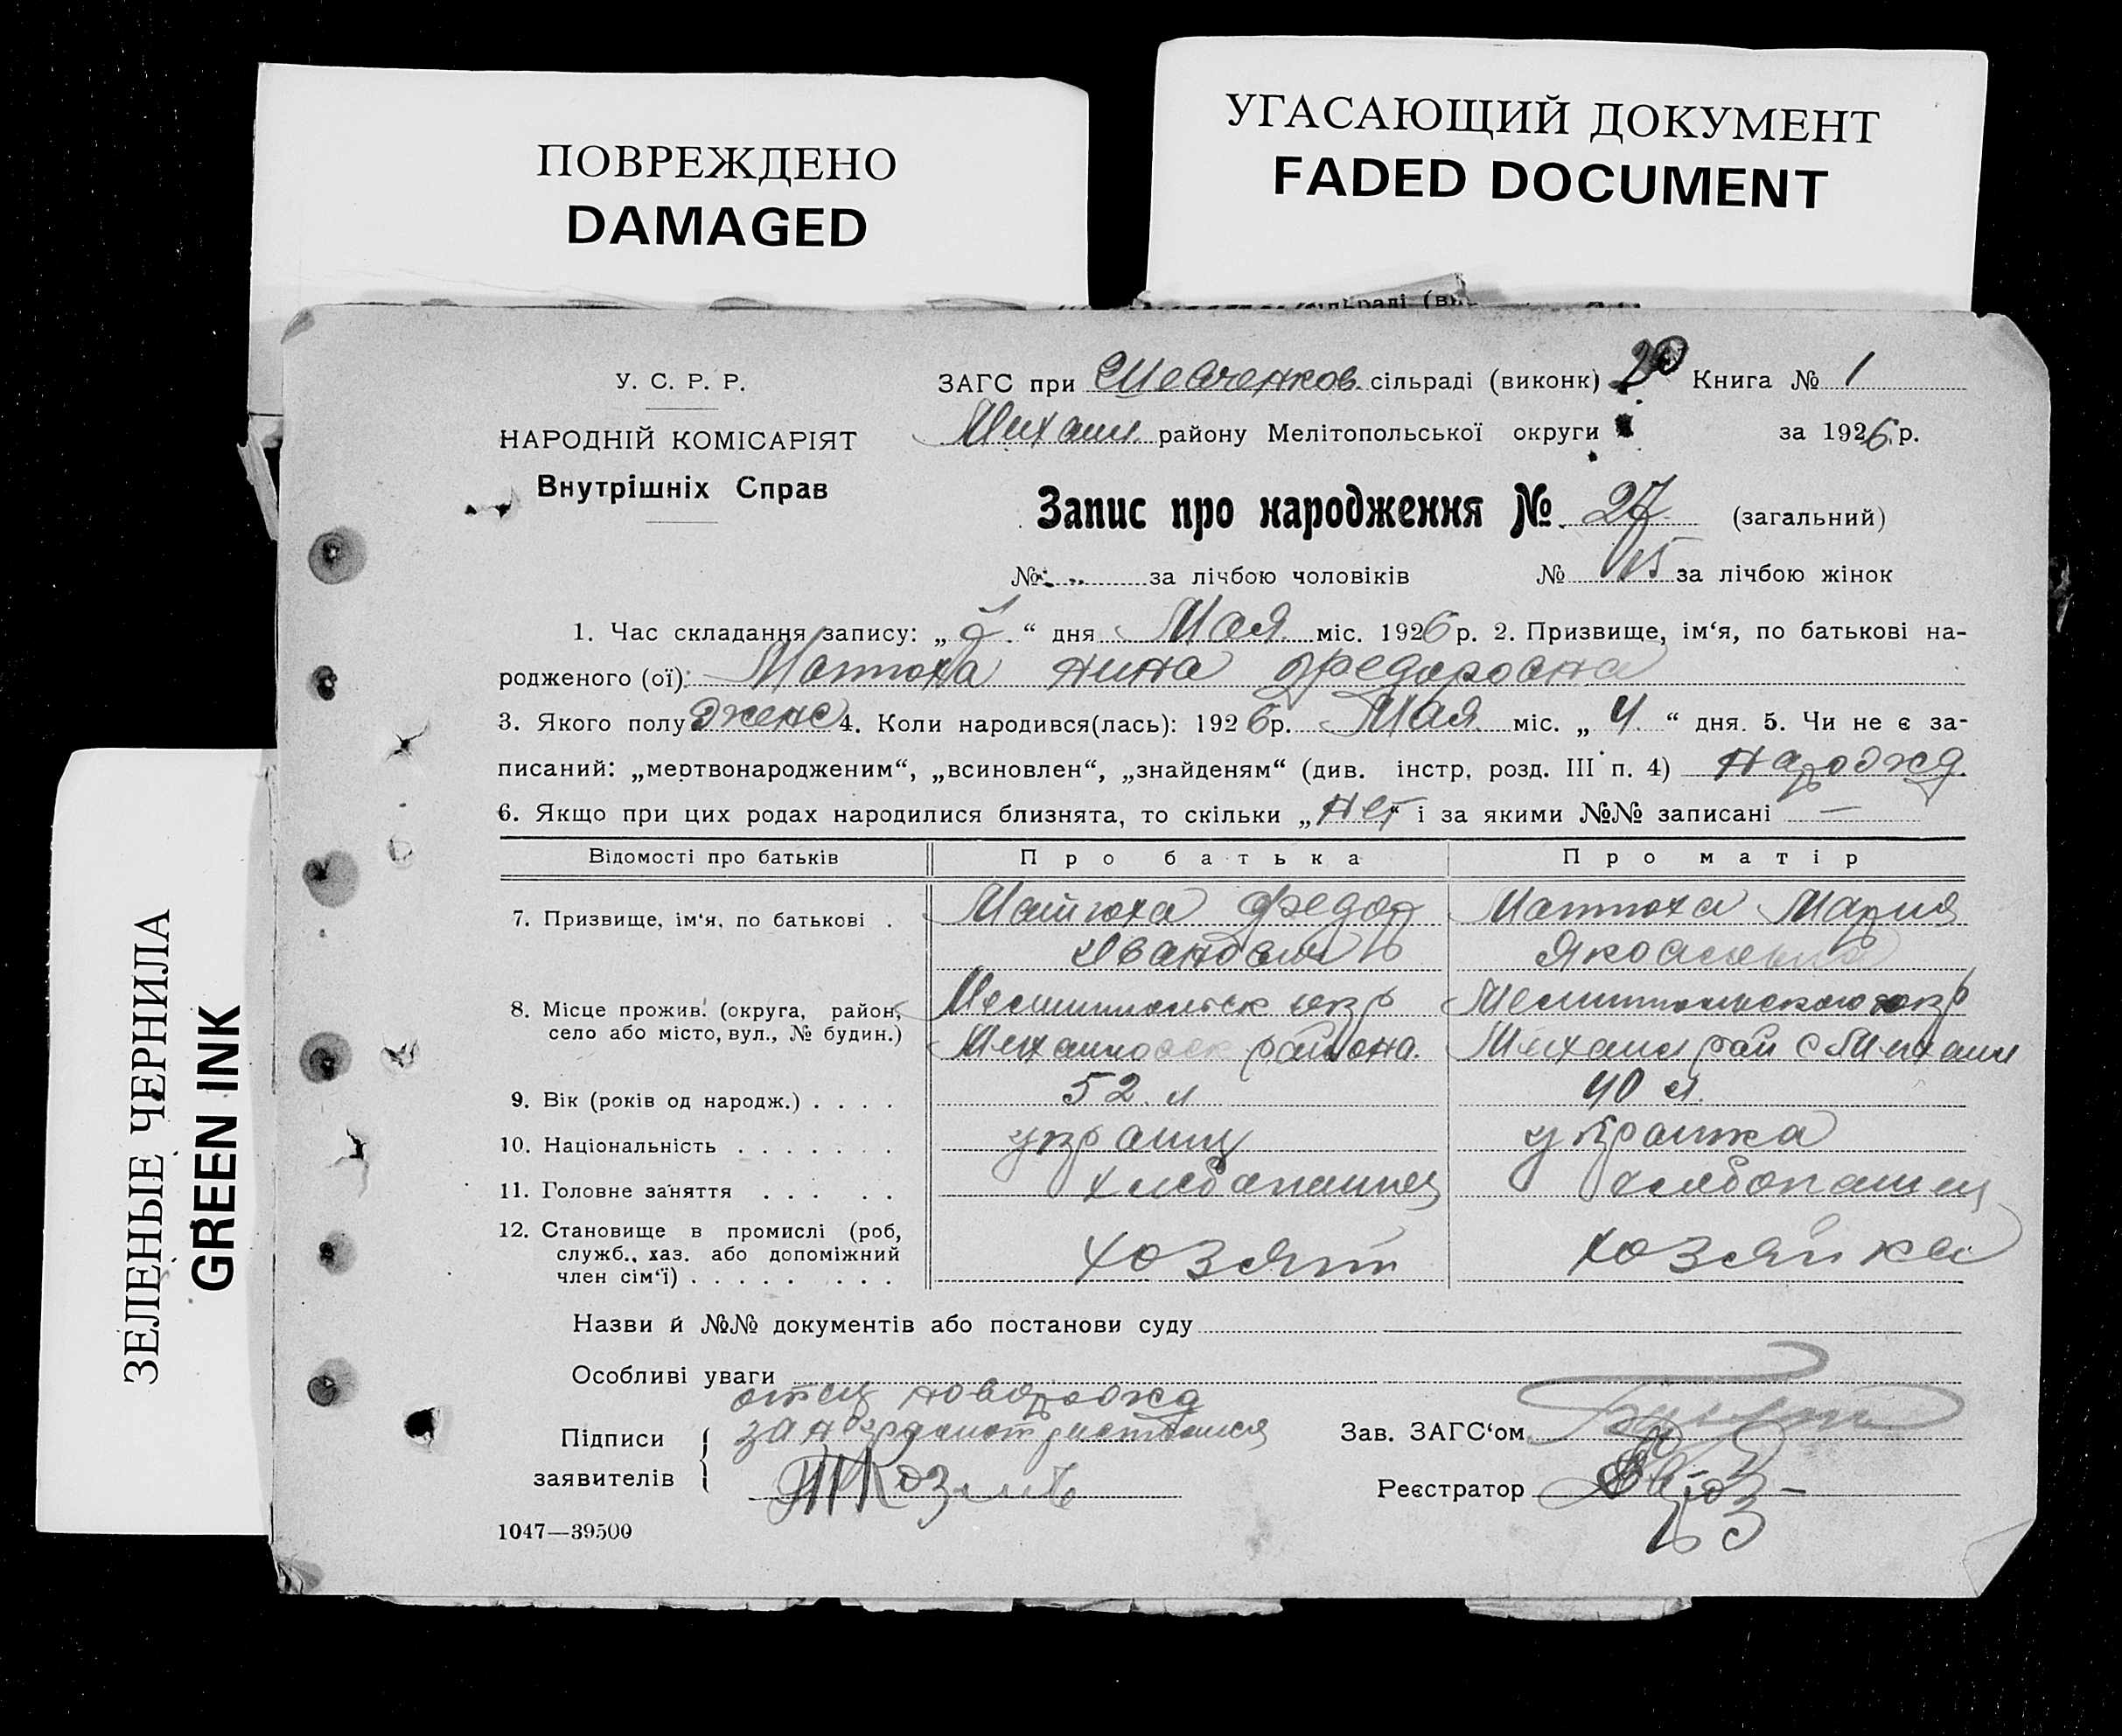 ПОВРЕЖДЕНО
DAMAGED
УГАСАЮЩИЙ ДОКУМЕНТ
FADED DOCUMENT
ЗЕЛЕНЫЕ ЧЕРНИЛА
GREEN INK
У. С. Р. Р.
НАРОДНІЙ КОМІСАРІЯТ
Внутрішніх Справ
ЗАГС при Шевченков. сільраді (виконк) 20 Книга № 1
Михайл. району Мелітопольської округи за 1926 р.
Запис про народження № 27 (загальний)
№ за лічбою чоловіків № 15 за лічбою жінок
1. Час складання запису: „ “ дня Мая міс. 1926 р. 2. Призвище, ім‘я, по батькові на-
родженого (ої): Матюха Нина Федоровна
3. Якого полу женс 4. Коли народився(лась): 1926 р. Мая міс. „ 4 “ дня. 5. Чи не є за-
писаний: „мертвонародженим“, „всиновлен“, „знайденям“ (див. інстр. розд. III п. 4) Нарожд.
6. Якщо при цих родах народилися близнята, то скільки „ Нет “ і за якими №№ записані —
Відомості про батьків Про батька Про матір
7. Призвище, ім‘я, по батькові . Матюха Федор Матюха Мария
Иванович Яковлевна
8. Місце прожив. (округа, район, Мелитопольск окр Мелитопольского окр
село або місто, вул., № будин.) Михайловск района. Михайл рай с Михайл
9. Вік (років од народж.) . . . . 52 л 40 л.
10. Національність . . . . . . . украинц украинка
11. Головне заняття . . . . . хлебопашец хлебопашец
12. Становище в промислі (роб,
служб., хаз. або допоміжний хозяин хозяйка
член сім‘ї) . . . . . . . .
Назви й №№ документів або постанови суду
Особливі уваги
отец новорожд
Підписи за неграмот расписался
заявителів
Зав. ЗАГС‘ом
Реєстратор
1047—39500